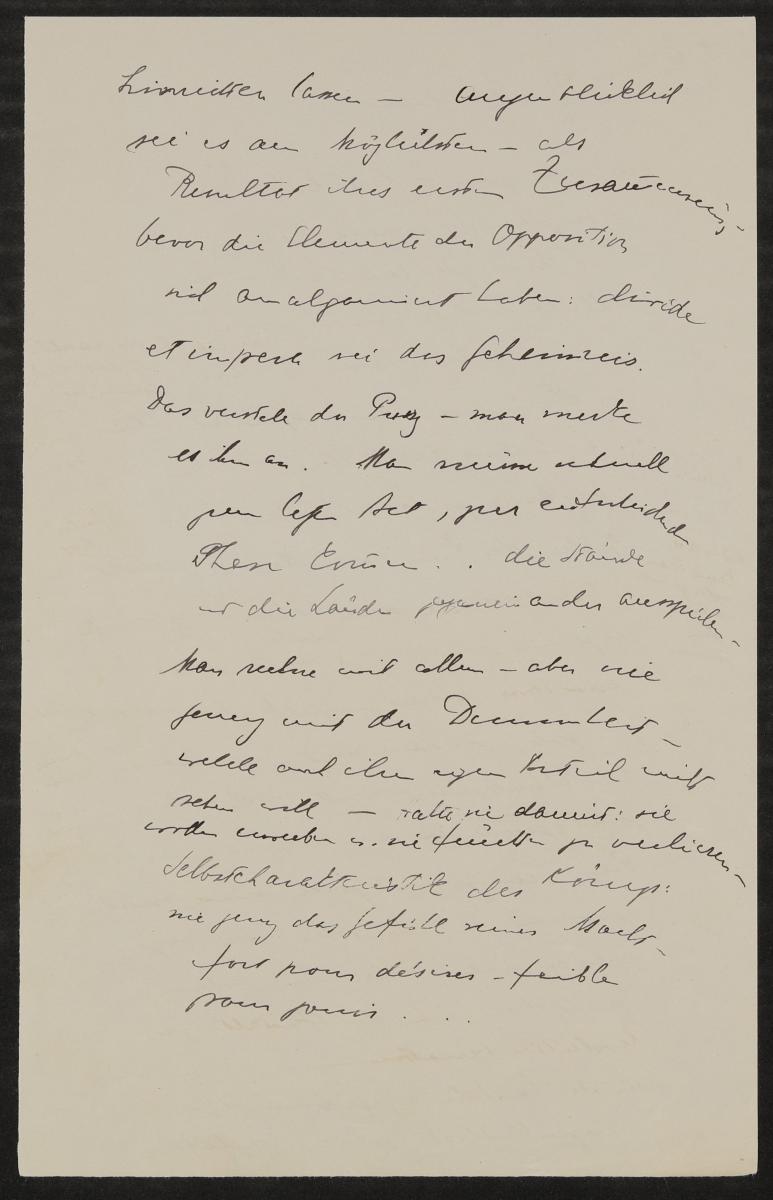 lassen — augenblicklich
sei es am möglichsten — als
Resultat ihres ersten Zusammenseins,
bevor die Elemente der Opposition
sich amalgamiert haben: divide
et impera sei das Geheimnis.
Das verstehe der — man merke
es ihm an. Man müsse schnell
Act, entscheidend
die Stände
und die Länder gegeneinander ausspielen —
Man rechne mit allem — aber nie
genug mit der Dummheit —
welche auch ihren eigenen Vorteil nicht
sehen will — sie damit: sie
wollen erwerben u. sie fürchten zu verlieren —
Selbstcharakteristik des Königs:
nie genug das Gefühl seiner Macht —
fort pour désirer — faible
pour jouir . . .